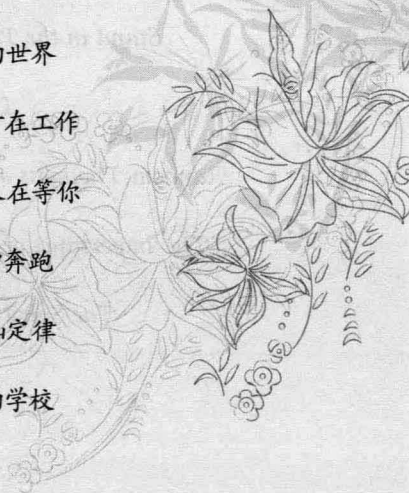 世界
在工作
在等你
奔跑
定律
学校